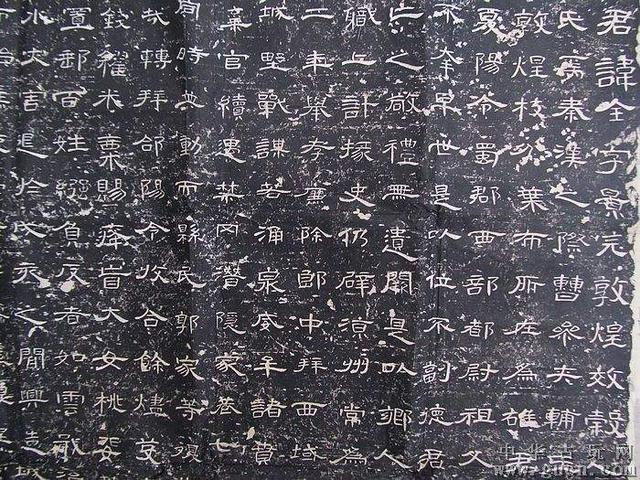 君諱全字景完敦煌效穀
氏焉秦漢之際曹參夾輔王
敦煌枝分葉布所在為雄君
夏陽令蜀郡西部都尉祖父
不幸早世是以位不副德君
亡之敬禮無遺闕是以鄉人
職上計掾史仍辟涼州常為
二年舉孝廉除郎中拜西域
城野戰謀若涌泉威牟諸賁
棄官續遇禁冈潛隱家巷七
旬時並動而縣民郭家等復
哉轉拜郃陽令收合餘燼芟
錢糴米粟賜癃盲大女桃婓
置郵百姓繈負反者如雲戢
水災害退於戌亥之間興造城
中华古玩网
www.gucn.com